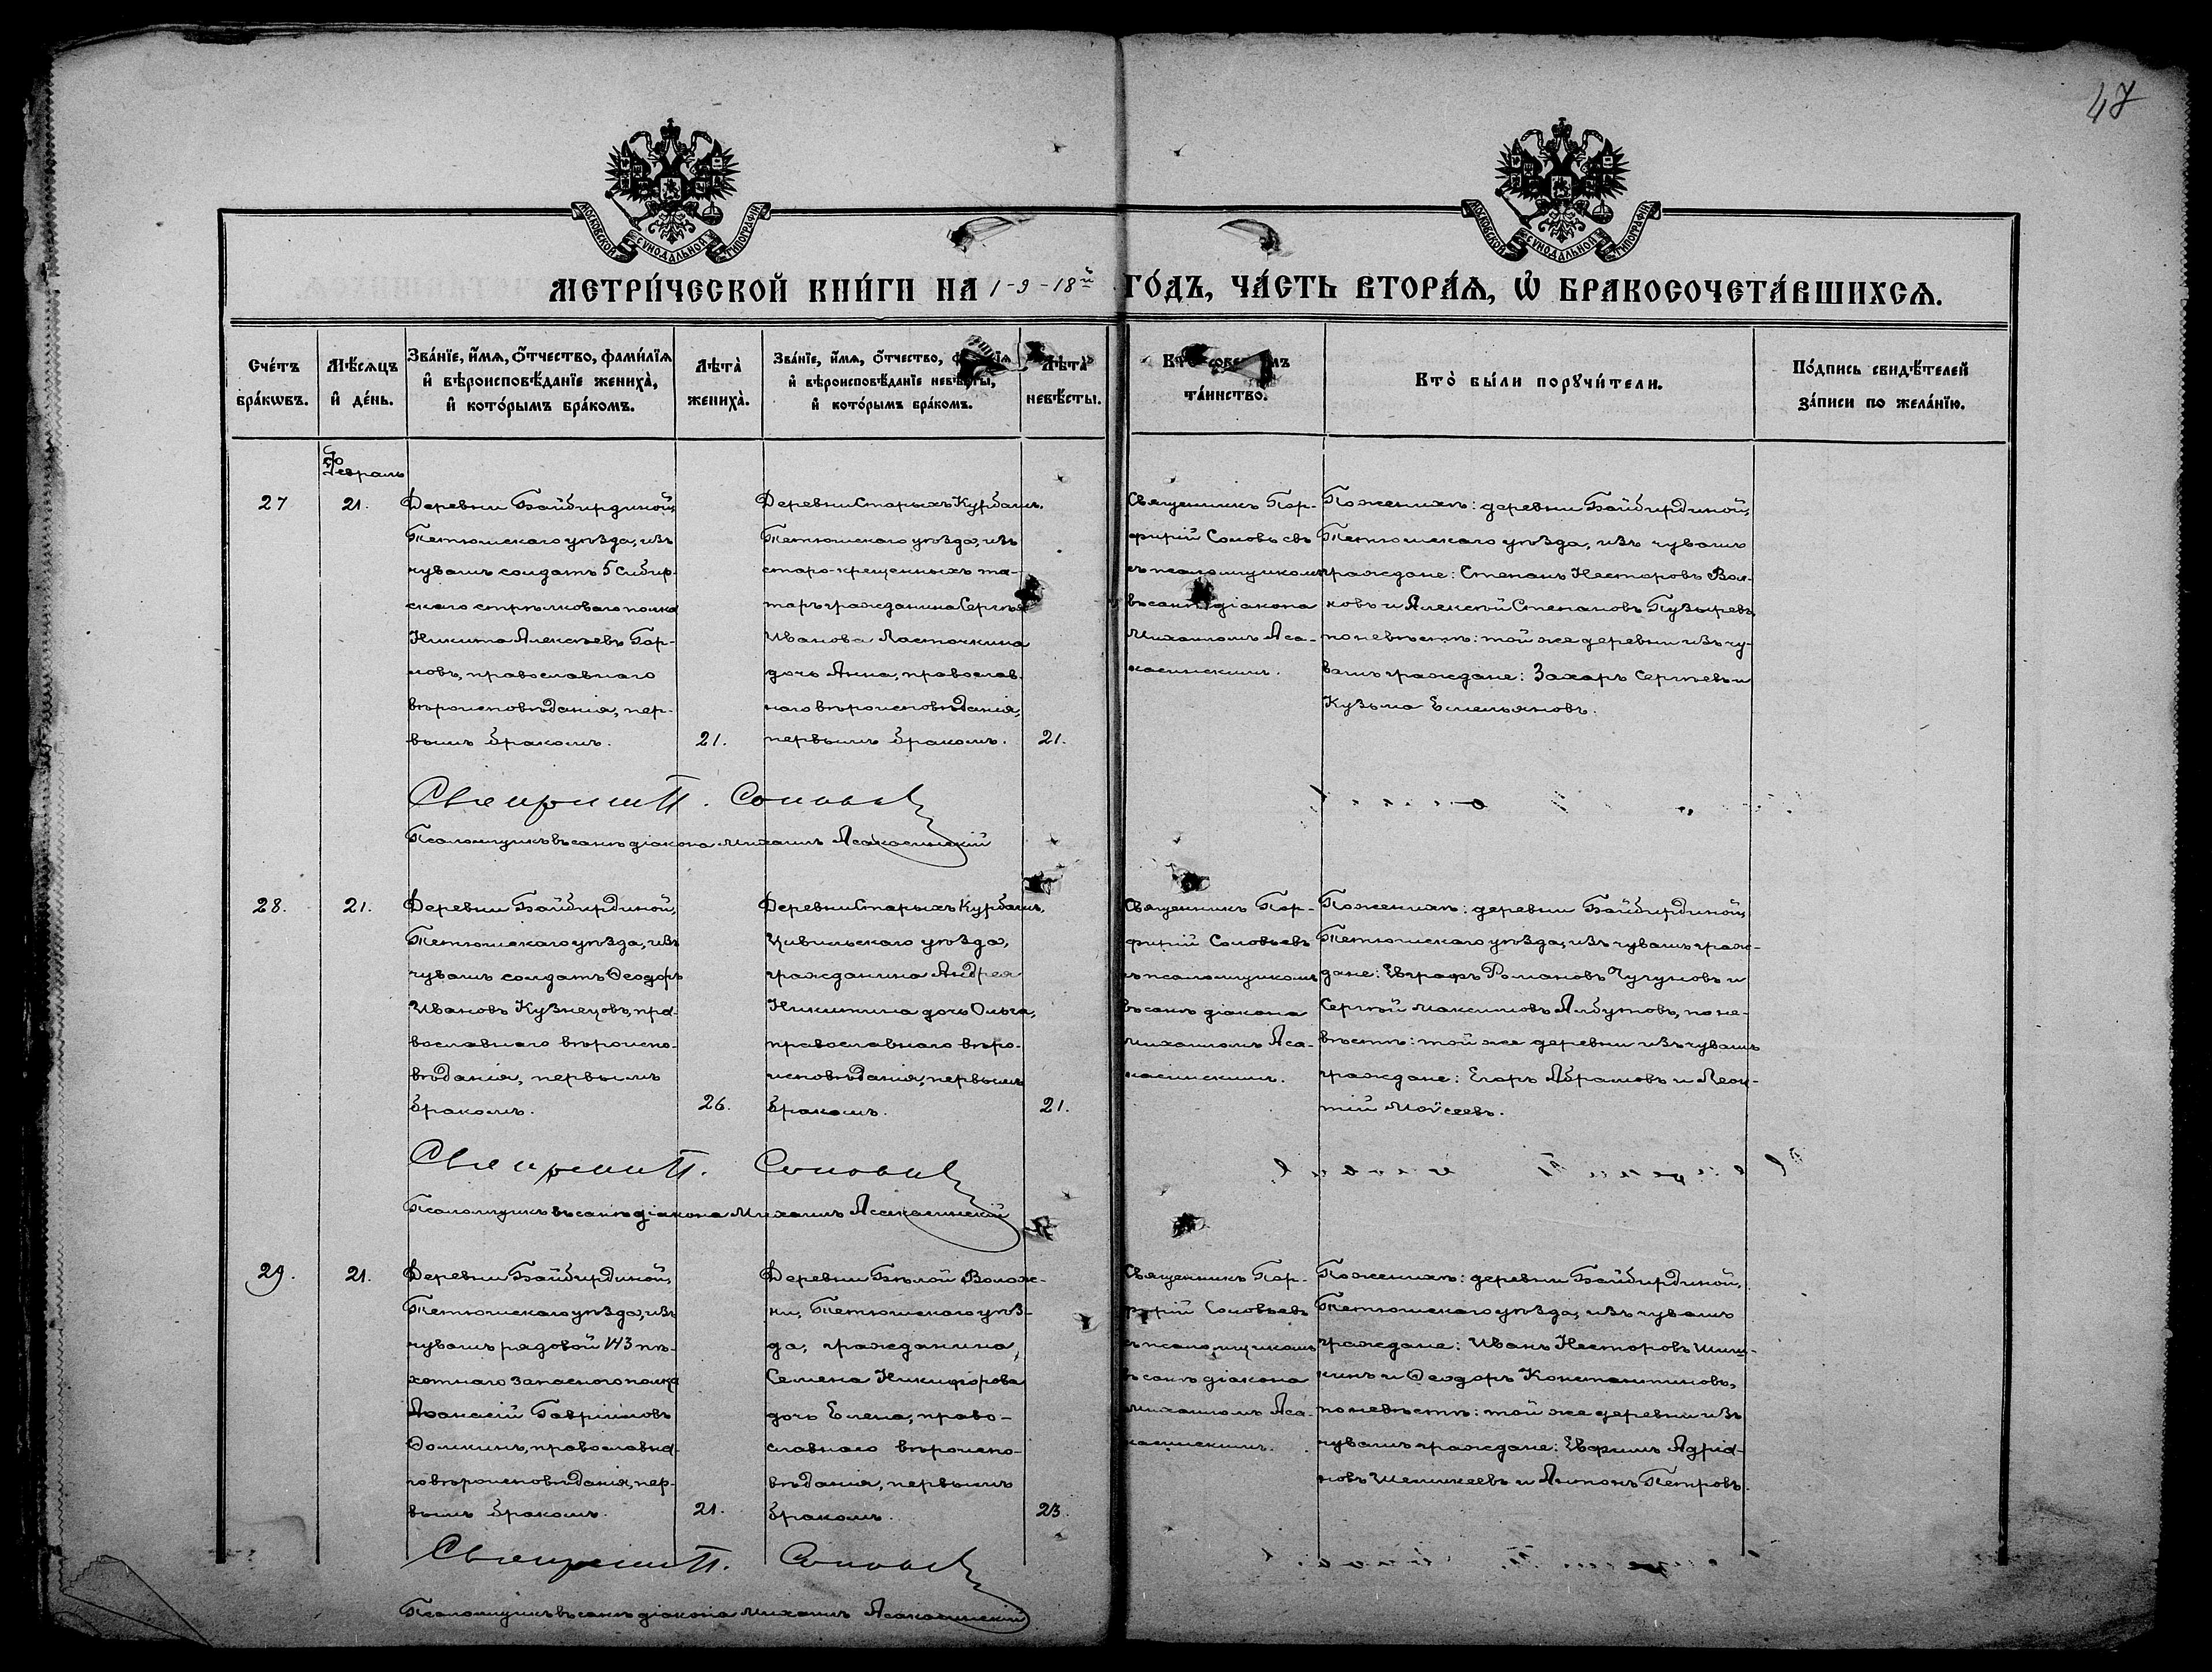 47
МОСКОВСКОЙ СУНОДАЛЬНОЙ ТИПОГРАФІИ
МОСКОВСКОЙ СУНОДАЛЬНОЙ ТИПОГРАФІИ
МЕТРИ́ЧЕСКОЙ КНИ́ГИ НА 1-9-18й ГО́ДЪ, ЧА́СТЬ ВТОРА́Ѧ, Ѡ҆ БРАКОСОЧЕТА́ВШИХСѦ.
Сче́тъ
бра́кѡвъ.
Мѣ́сѧцъ
и҆ де́нь.
Зва́нїе, и҆́мѧ, ѻ҆́тчество, фами́лїѧ
и҆ вѣроисповѣ́данїе жениха̀,
и҆ кото́рымъ бра́комъ.
Лѣ́та̀
жениха̀.
Зва́нїе, и҆́мѧ, ѻ҆́тчество,
и҆ вѣроисповѣ́данїе невѣ́сты,
и҆ кото́рымъ бра́комъ.
Лѣ́та̀
невѣ́сты.
та́инство.
Кто̀ бы́ли порꙋчи́тели.
По́дпись свидѣ́телей
за́писи по жела́нїю.
Февраль
27
21.
Деревни Байбирдиной,
Тетюшскаго уѣзда, изъ
чувашъ солдатъ 5 Сибир-
скаго стрѣлковаго полка
Никита Алексѣевъ Гор-
новъ, православнаго
вѣроисповѣданія, пер-
вымъ бракомъ.
21.
Деревни Старыхъ Курбашъ,
Тетюшскаго уѣзда, изъ
старо-крещенныхъ та-
таръ гражданина Сергѣя
Иванова Ласточкина
дочь Анна, православ-
наго вѣроисповѣданія,
первымъ бракомъ.
21.
Священникъ Пор-
фирій Соловьевъ
съ псаломщикомъ
въ санѣ діакона
Михаиломъ Аса-
касинскимъ.
По женихѣ: деревни Байбирдиной,
Тетюшскаго уѣзда, изъ чувашъ
граждане: Степанъ Несторовъ Вол-
ковъ и Алексѣй Степановъ Пузыревъ,
по невѣстѣ: той же деревни изъ чу-
вашъ граждане: Захаръ Сергѣевъ и
Кузьма Емельяновъ.
Священникъ П. Соловьев
Псаломщикъ въ санѣ діакона Михаилъ Асакасинскій
28.
21.
Деревни Байбирдиной,
Тетюшскаго уѣзда, изъ
чувашъ солдатъ Ѳеодоръ
Ивановъ Кузнецовъ, пра-
вославнаго вѣроиспо-
вѣданія, первымъ
бракомъ.
26.
Деревни Старыхъ Курбашъ,
Цивильскаго уѣзда,
гражданина Андрея
Никитина дочь Ольга,
православнаго вѣро-
исповѣданія, первымъ
бракомъ.
21.
Священникъ Пор-
фирій Соловьевъ
съ псаломщикомъ
въ санѣ діакона
Михаиломъ Аса-
касинскимъ.
По женихѣ: деревни Байбирдиной,
Тетюшскаго уѣзда, изъ чувашъ граж-
дане: Евграфъ Романовъ Чугуновъ и
Сергѣй Максимовъ Албутовъ, по не-
вѣстѣ: той же деревни изъ чувашъ
граждане: Егоръ Абрамовъ и Леон-
тій Моѵсеевъ.
Священникъ П. Соловьев
Псаломщикъ въ санѣ діакона Михаилъ Асакасинскій
29.
21.
Деревни Байбирдиной,
Тетюшскаго уѣзда, изъ
чувашъ рядовой 143 пѣ-
хотнаго запасного полка
Аѳанасій Гавріиловъ
Ѳомкинъ, православна-
го вѣроисповѣданія, пер-
вымъ бракомъ.
21.
Деревни Бѣлой Волож-
ки, Тетюшскаго уѣз-
да, гражданина
Семена Никифорова
дочь Елена, право-
славнаго вѣроиспо-
вѣданія, первымъ
бракомъ.
23.
Священникъ Пор-
фирій Соловьевъ
съ псаломщикомъ
въ санѣ діакона
Михаиломъ Аса-
касинскимъ.
По женихѣ: деревни Байбирдиной,
Тетюшскаго уѣзда, изъ чувашъ
граждане: Иванъ Несторовъ Шиш-
кинъ и Ѳеодоръ Константиновъ,
по невѣстѣ: той же деревни изъ
чувашъ граждане: Евфимъ Адріа-
новъ Шешкеевъ и Антонъ Петровъ.
Священникъ П. Соловьев
Псаломщикъ въ санѣ діакона Михаилъ Асакасинскій